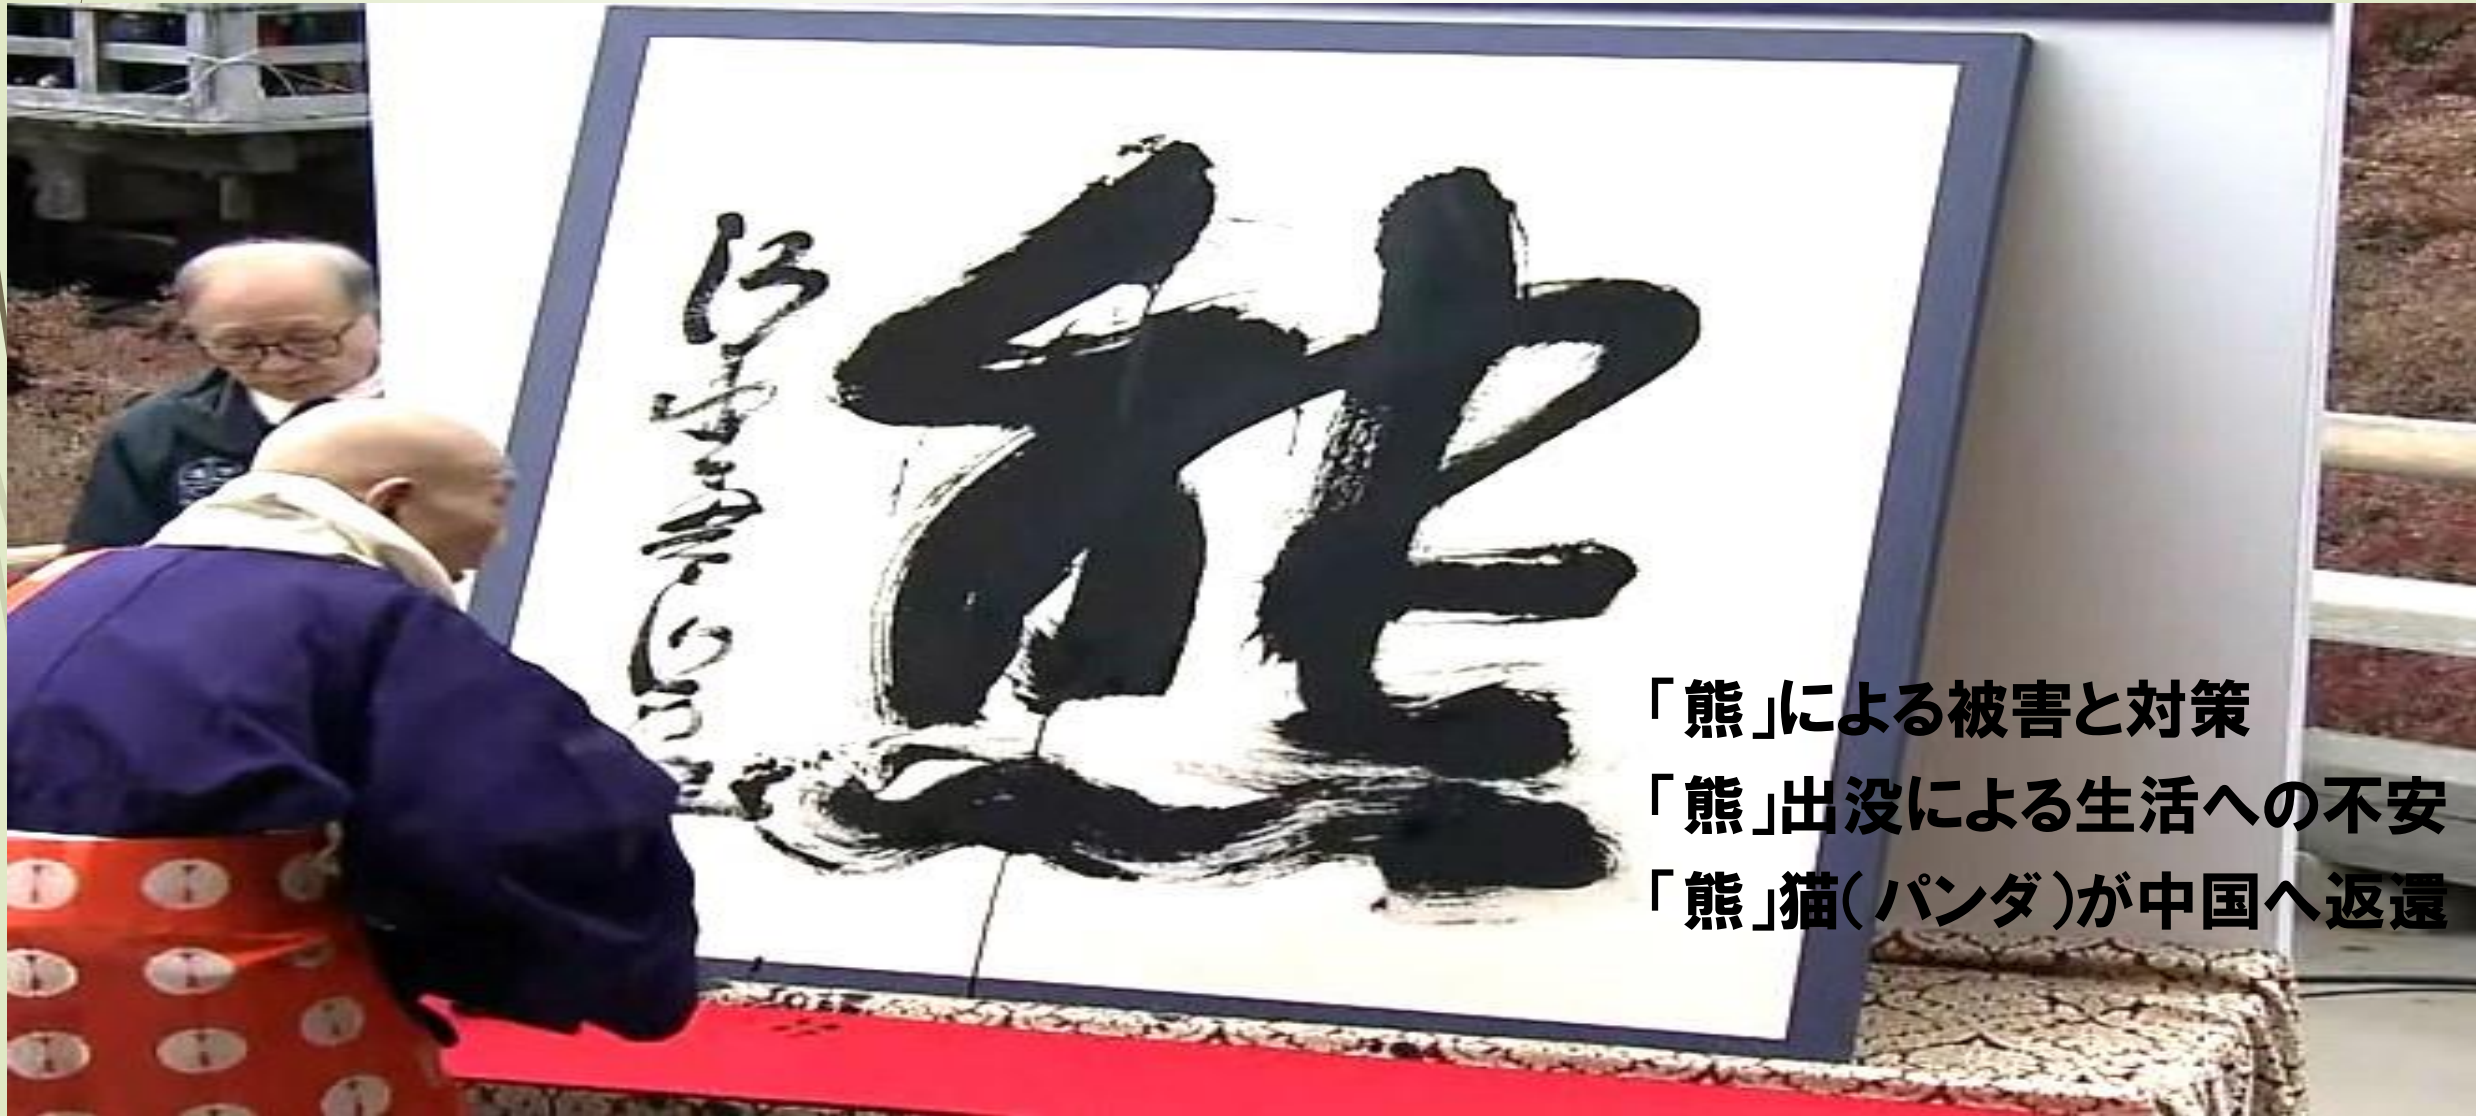 熊
「熊」による被害と対策
「熊」出没による生活への不安
「熊」猫(パンダ)が中国へ返還